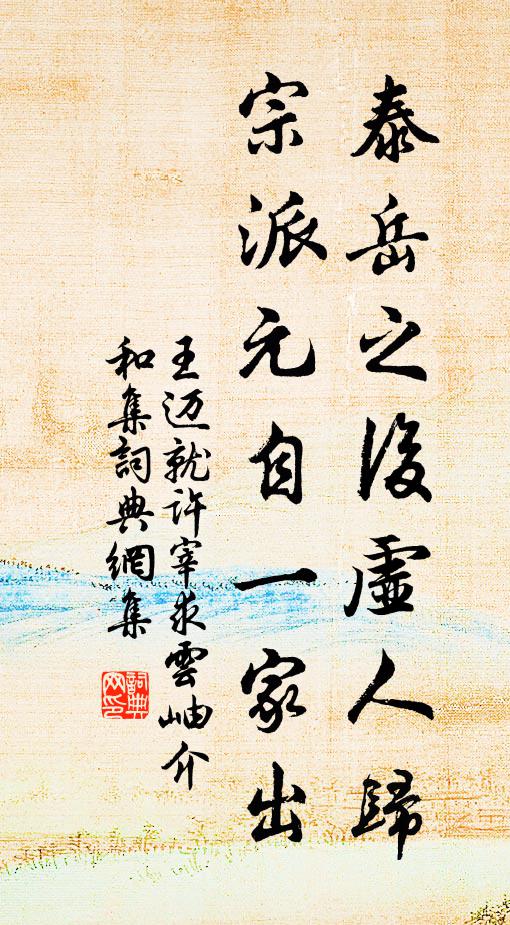 泰岳之後虛人歸
宗派元自一家出
王迈就许宰求雲岫介
和集詞典網集
詞典网印